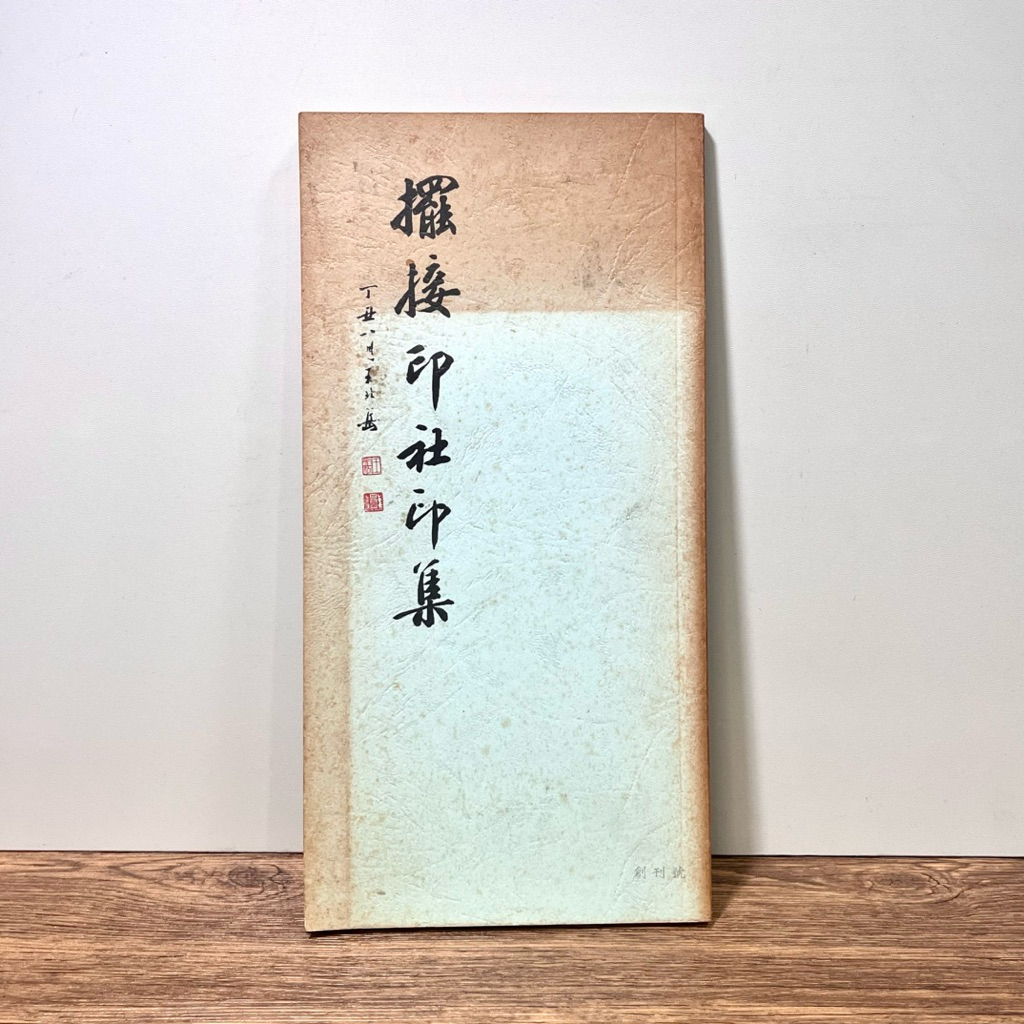 擺接印社印集
丁丑八月王北岳
創刊號